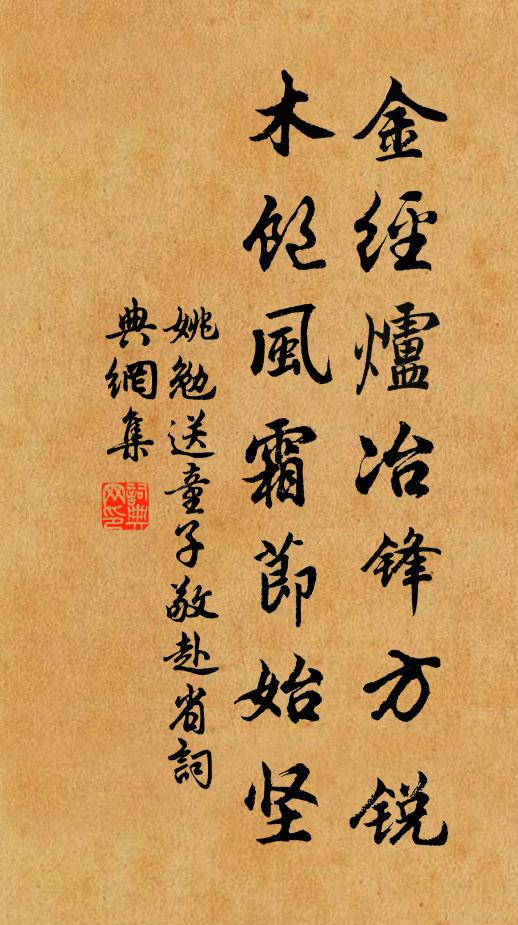 金經爐冶鋒方銳
木飽風霜節始坚
姚勉送童子敬赴省詞
典網集
詞典网印